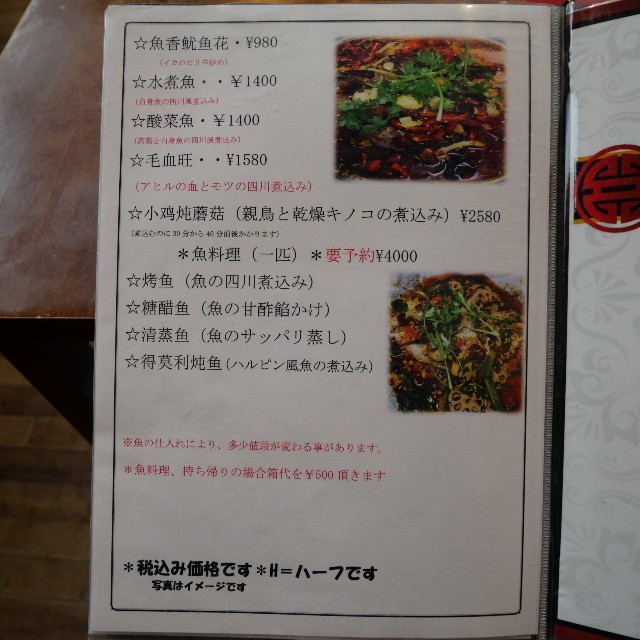 ☆魚香鱿鱼花・¥980
(イカのピリ辛炒め)
☆水煮魚・・¥1400
(白身魚の四川風煮込み)
☆酸菜魚・¥1400
(高菜と白身魚の四川風煮込み)
☆毛血旺・・¥1580
(アヒルの血とモツの四川煮込み)
☆小鸡炖蘑菇（親鳥と乾燥キノコの煮込み）¥2580
(煮込むのに30分から40分前後かかります)
＊魚料理（一匹）＊要予約¥4000
☆烤鱼（魚の四川煮込み）
☆糖醋鱼（魚の甘酢餡かけ）
☆清蒸鱼（魚のサッパリ蒸し）
☆得莫利炖鱼(ハルピン風魚の煮込み)
※魚の仕入れにより、多少値段が変わる事があります。
＊魚料理、持ち帰りの場合箱代を¥500頂きます
＊税込み価格です＊H＝ハーフです
写真はイメージです